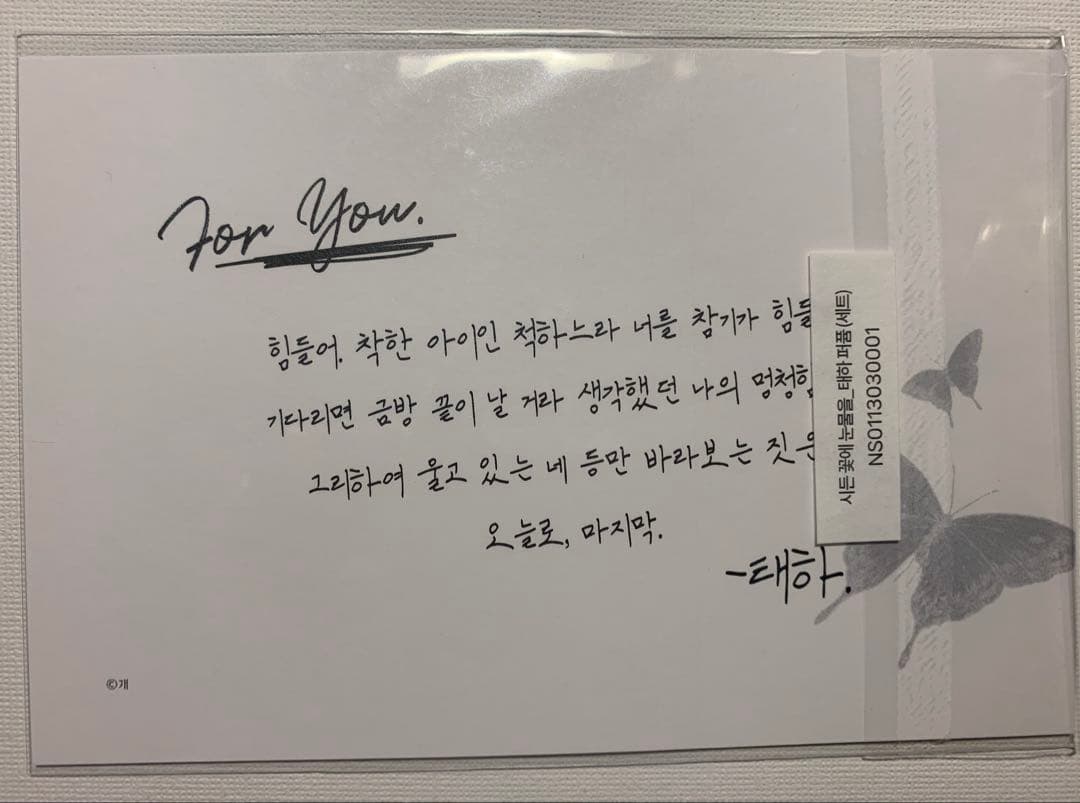 For You.
힘들어. 착한 아이인 척하느라 너를 참기가
기다리면 금방 끝이 날 거라 생각했던 나의
그리하여 울고 있는 네 등만 바라보는 짓은
오늘로, 마지막.
-태하.
시든 꽃에 눈물을_태하 퍼퓸(세트)
NS0113030001
©개